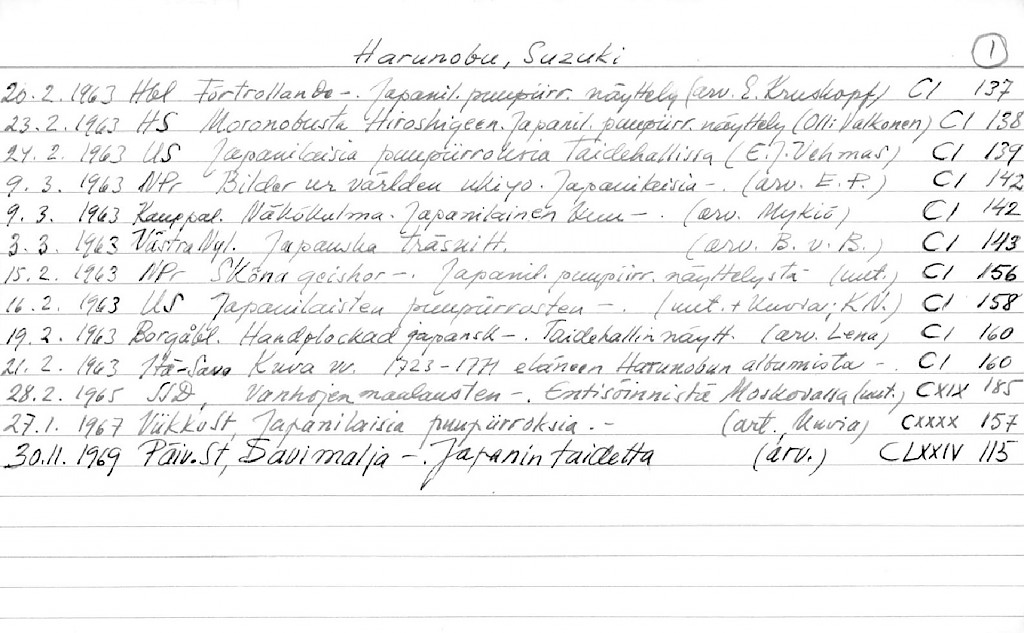 Harunobu, Suzuki 1
20.2.1963 Hbl Förtrollande -. Japanil. puupiirr. näyttely (arv. E. Kruskopf) CI 137
23.2.1963 HS Moronobusta Hiroshigeen. Japanil. puupiirr. näyttely (Olli Valkonen) CI 138
24.2.1963 US Japanilaisia puupiirroksia Taidehallissa (E.J. Vehmas) CI 139
9.3.1963 NPr Bilder ur världen ukiyo. Japanilaisia -. (arv. E.P.) CI 142
9.3.1963 Kauppal. Näkökulma. Japanilainen kuu -. (arv. Mykiö) CI 142
3.3.1963 Västra Nyl. Japanska träsnitt. (arv. B.v.B.) CI 143
15.2.1963 NPr Sköna geishor -. Japanil. puupiirr. näyttelystä (uut.) CI 156
16.2.1963 US Japanilaisten puupiirrosten -. (uut. + kuvia; K.N.) CI 158
19.2.1963 Borgåbl. Handplockad japansk -. Taidehallin näytt. (arv. Lena) CI 160
21.2.1963 Itä-Savo Kuva vv. 1723-1771 eläneen Harunobun albumista -. CI 160
28.2.1965 SSD, Vanhojen maalausten -. Entisöinnistä Moskovassa (uut.) CXIX 185
27.1.1967 ViikkoSt, Japanilaisia puupiirroksia. - (art., kuvia) CXXXX 157
30.11.1969 Päiv.St, Savimalja -. Japanin taidetta (arv.) CLXXIV 115